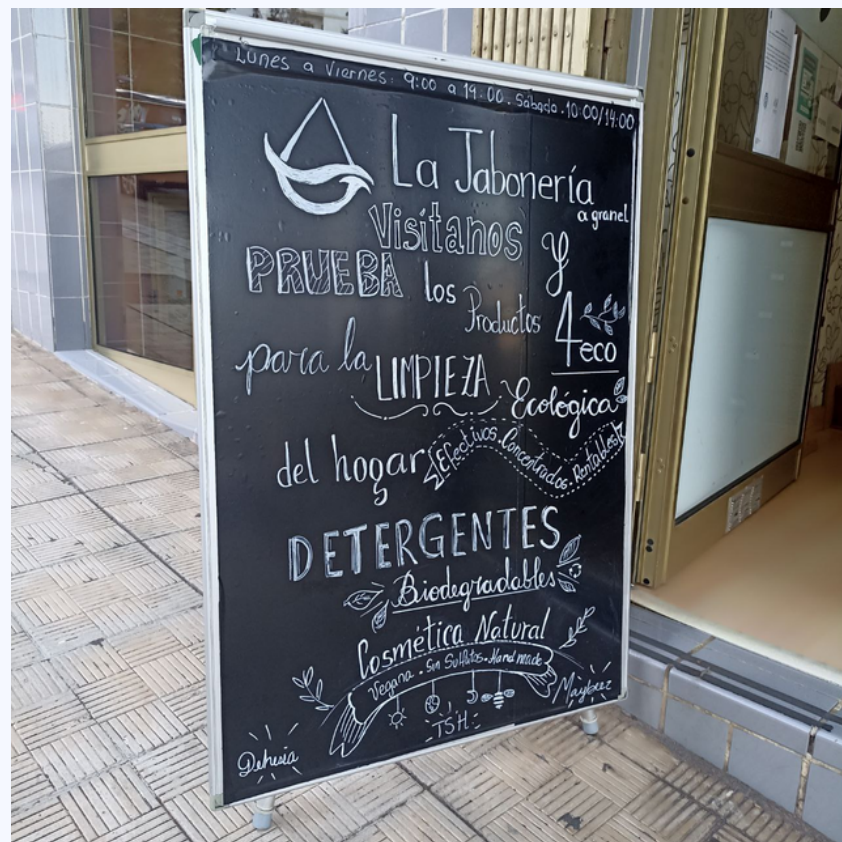 Lunes a Viernes: 9:00 a 19:00. Sábado. 10:00/14:00
La Jabonería
a granel
Visítanos y
PRUEBA los
Productos 4eco
para la LIMPIEZA
Ecológica
del hogar
Efectivos. Concentrados. Rentables
DETERGENTES
Biodegradables
Cosmética Natural
Vegana. Sin Sulfatos. Handmade
TSH